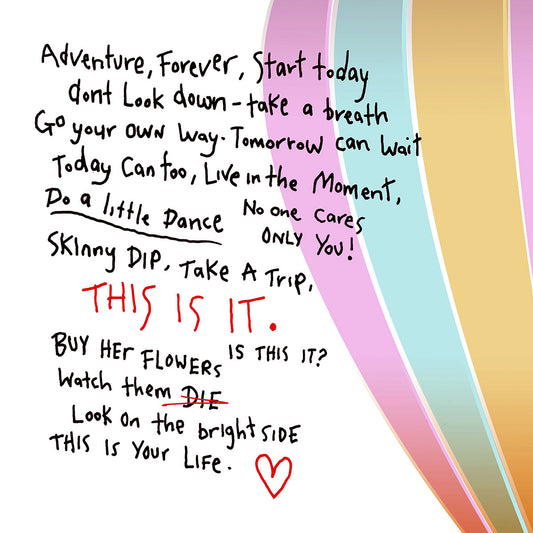 Adventure, Forever, Start today
dont Look down - take a breath
Go your own way. Tomorrow can wait
Today Can too, Live in the Moment,
Do a little Dance
No one cares
ONLY You!
Skinny DIP, Take A Trip,
THIS IS IT.
IS THIS IT?
BUY HER FLOWERS
Watch them DIE
Look On the bright SIDE
THIS IS Your LIFE.